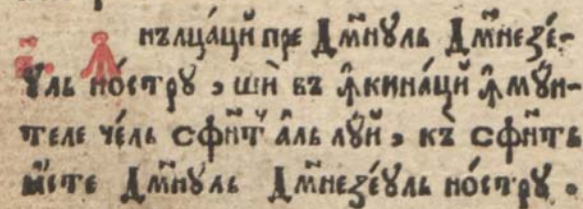 Ꙟнълца́цй пре Дм҃нꙋль Дм҃незе́-
ꙋль но́стрꙋ , шѝ въ ꙟкина́цй ꙟ мꙋ́н-
теле че́ль сфн҃т а҆́ль лꙋй , къ̀ сфн҃ть
ꙗ҆́сте Дм҃нꙋль Дм҃незе́ꙋль но́стрꙋ .